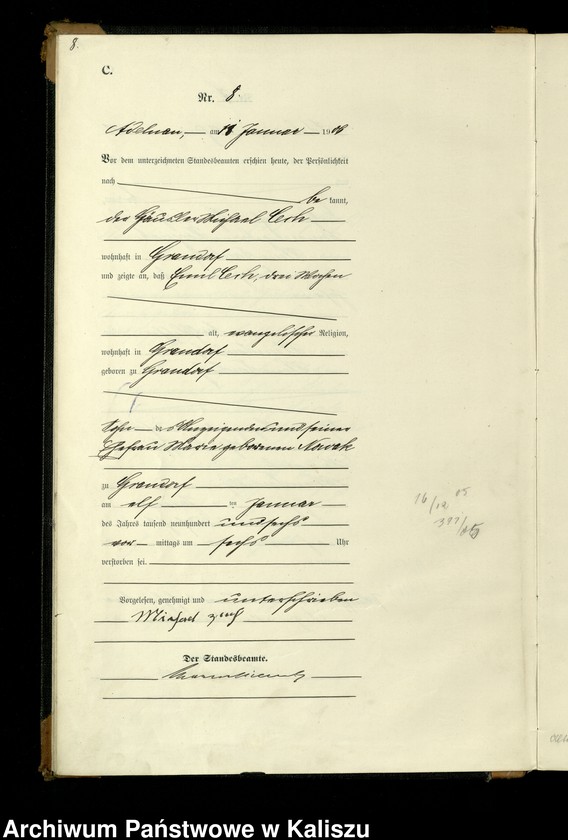 8.
C.
Nr. 8.
Adelnau, am 12 Januar 1906
Vor dem unterzeichneten Standesbeamten erschien heute, der Persönlichkeit
nach
be kannt,
der Häusler Michael Cech
wohnhaft in Grandorf
und zeigte an, daß Emil Cech, drei Wochen
alt, evangelischer Religion,
wohnhaft in Grandorf
geboren zu Grandorf
Sohn des Anzeigenden und seiner
Ehefrau Marie geborenen Nawak
zu Grandorf
am elf ten Januar
des Jahres tausend neunhundert und sechs
vor mittags um sechs Uhr
verstorben sei.
Vorgelesen, genehmigt und unterschrieben
Michael
Der Standesbeamte.
16/12 05
Archiwum Państwowe w Kaliszu